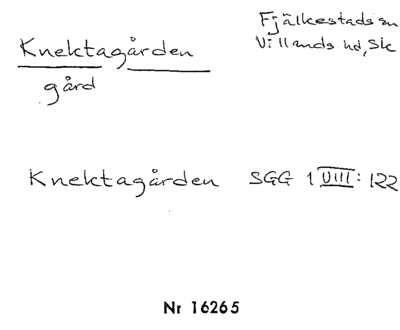 Fjälkestads sn
Villands hd, Sk
Knektagården
gård
Knektagården SGG 1 VIII: 122
Nr 16265